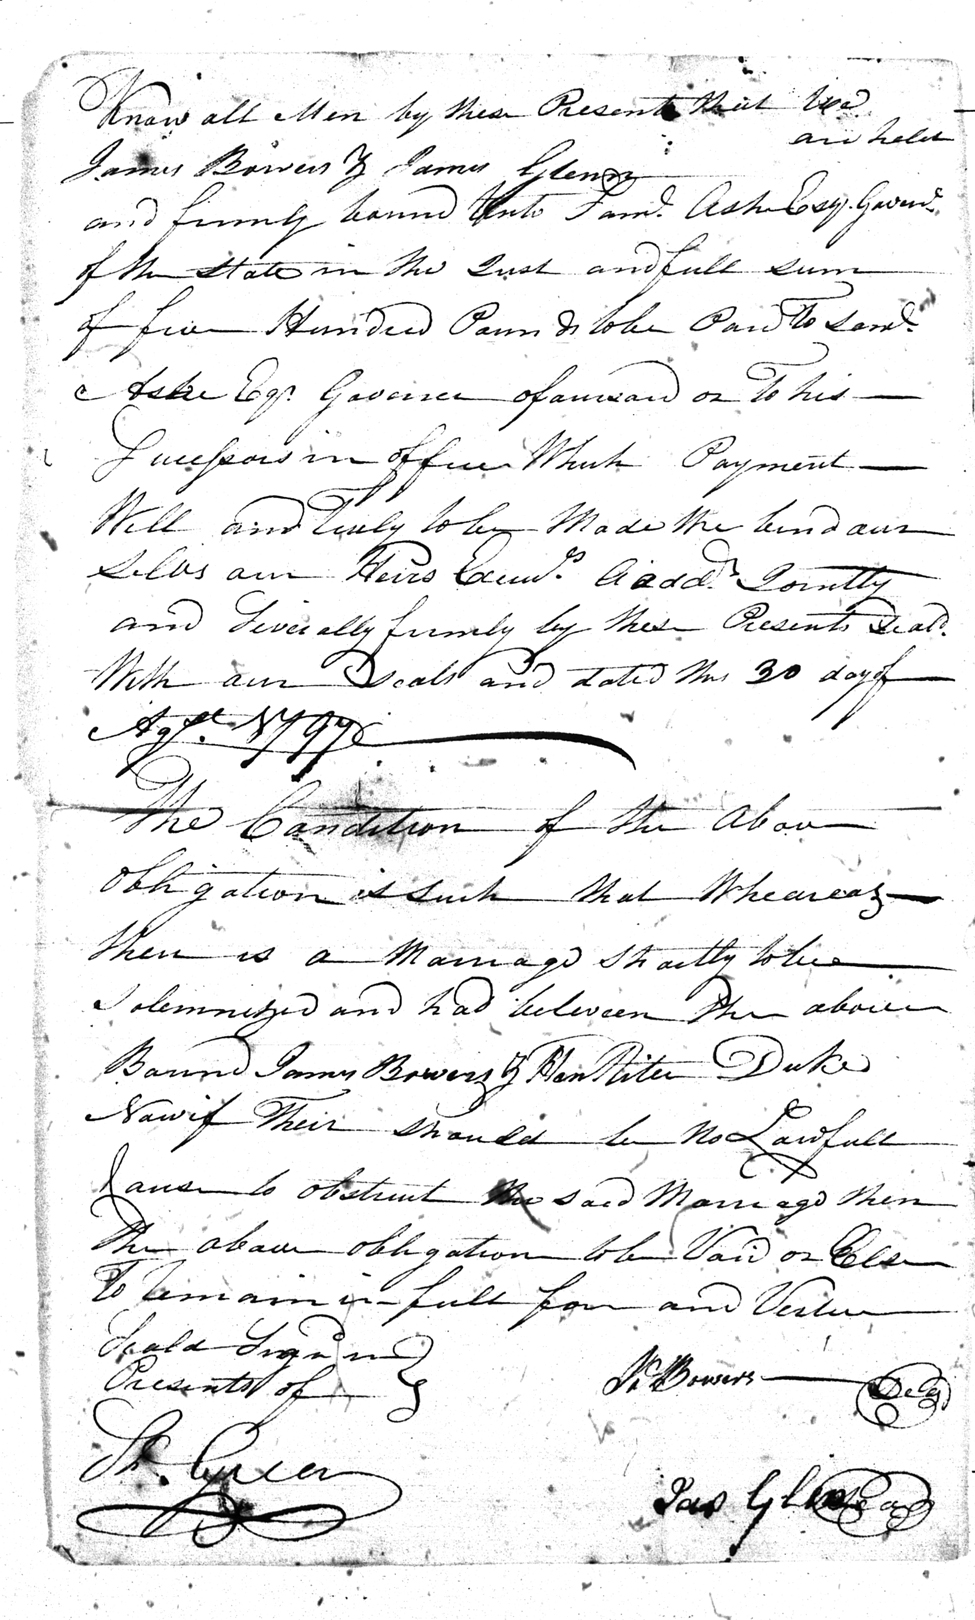 Know all Men by these Presents that We
are held
James Bowers & James Glenn
and firmly bound Unto Saml. Ashe Esqr. Govenr.
of the State in the Just and full sum
of five Hundred Pounds to be Paid To Saml.
Ashe Eqr. Govenor of aursaid or To his
Successors in office Which Payment
Well and Truly to be Made We bind our
Selvs our Heirs Exeurs. Aadds. Jointly
and Siverally firmly by these Presents Seald.
With our Seals and dated this 30 day of
Agst. 1797
The Condition of the Above
Obligation is such that Wheareas
there is a Marriage Shortly to be
Solemnized and had between the above
Bound James Bowers & Han Riter Duke
Now if Their should be No Lawfull
Cause to obstruct the said Marriage then
the above obligation to be Void or Else
To Remain in full force and Vertue
Seald Signd in
Presents of
Js. Bowers Seal
Sh. Green
Jas Glen Seal